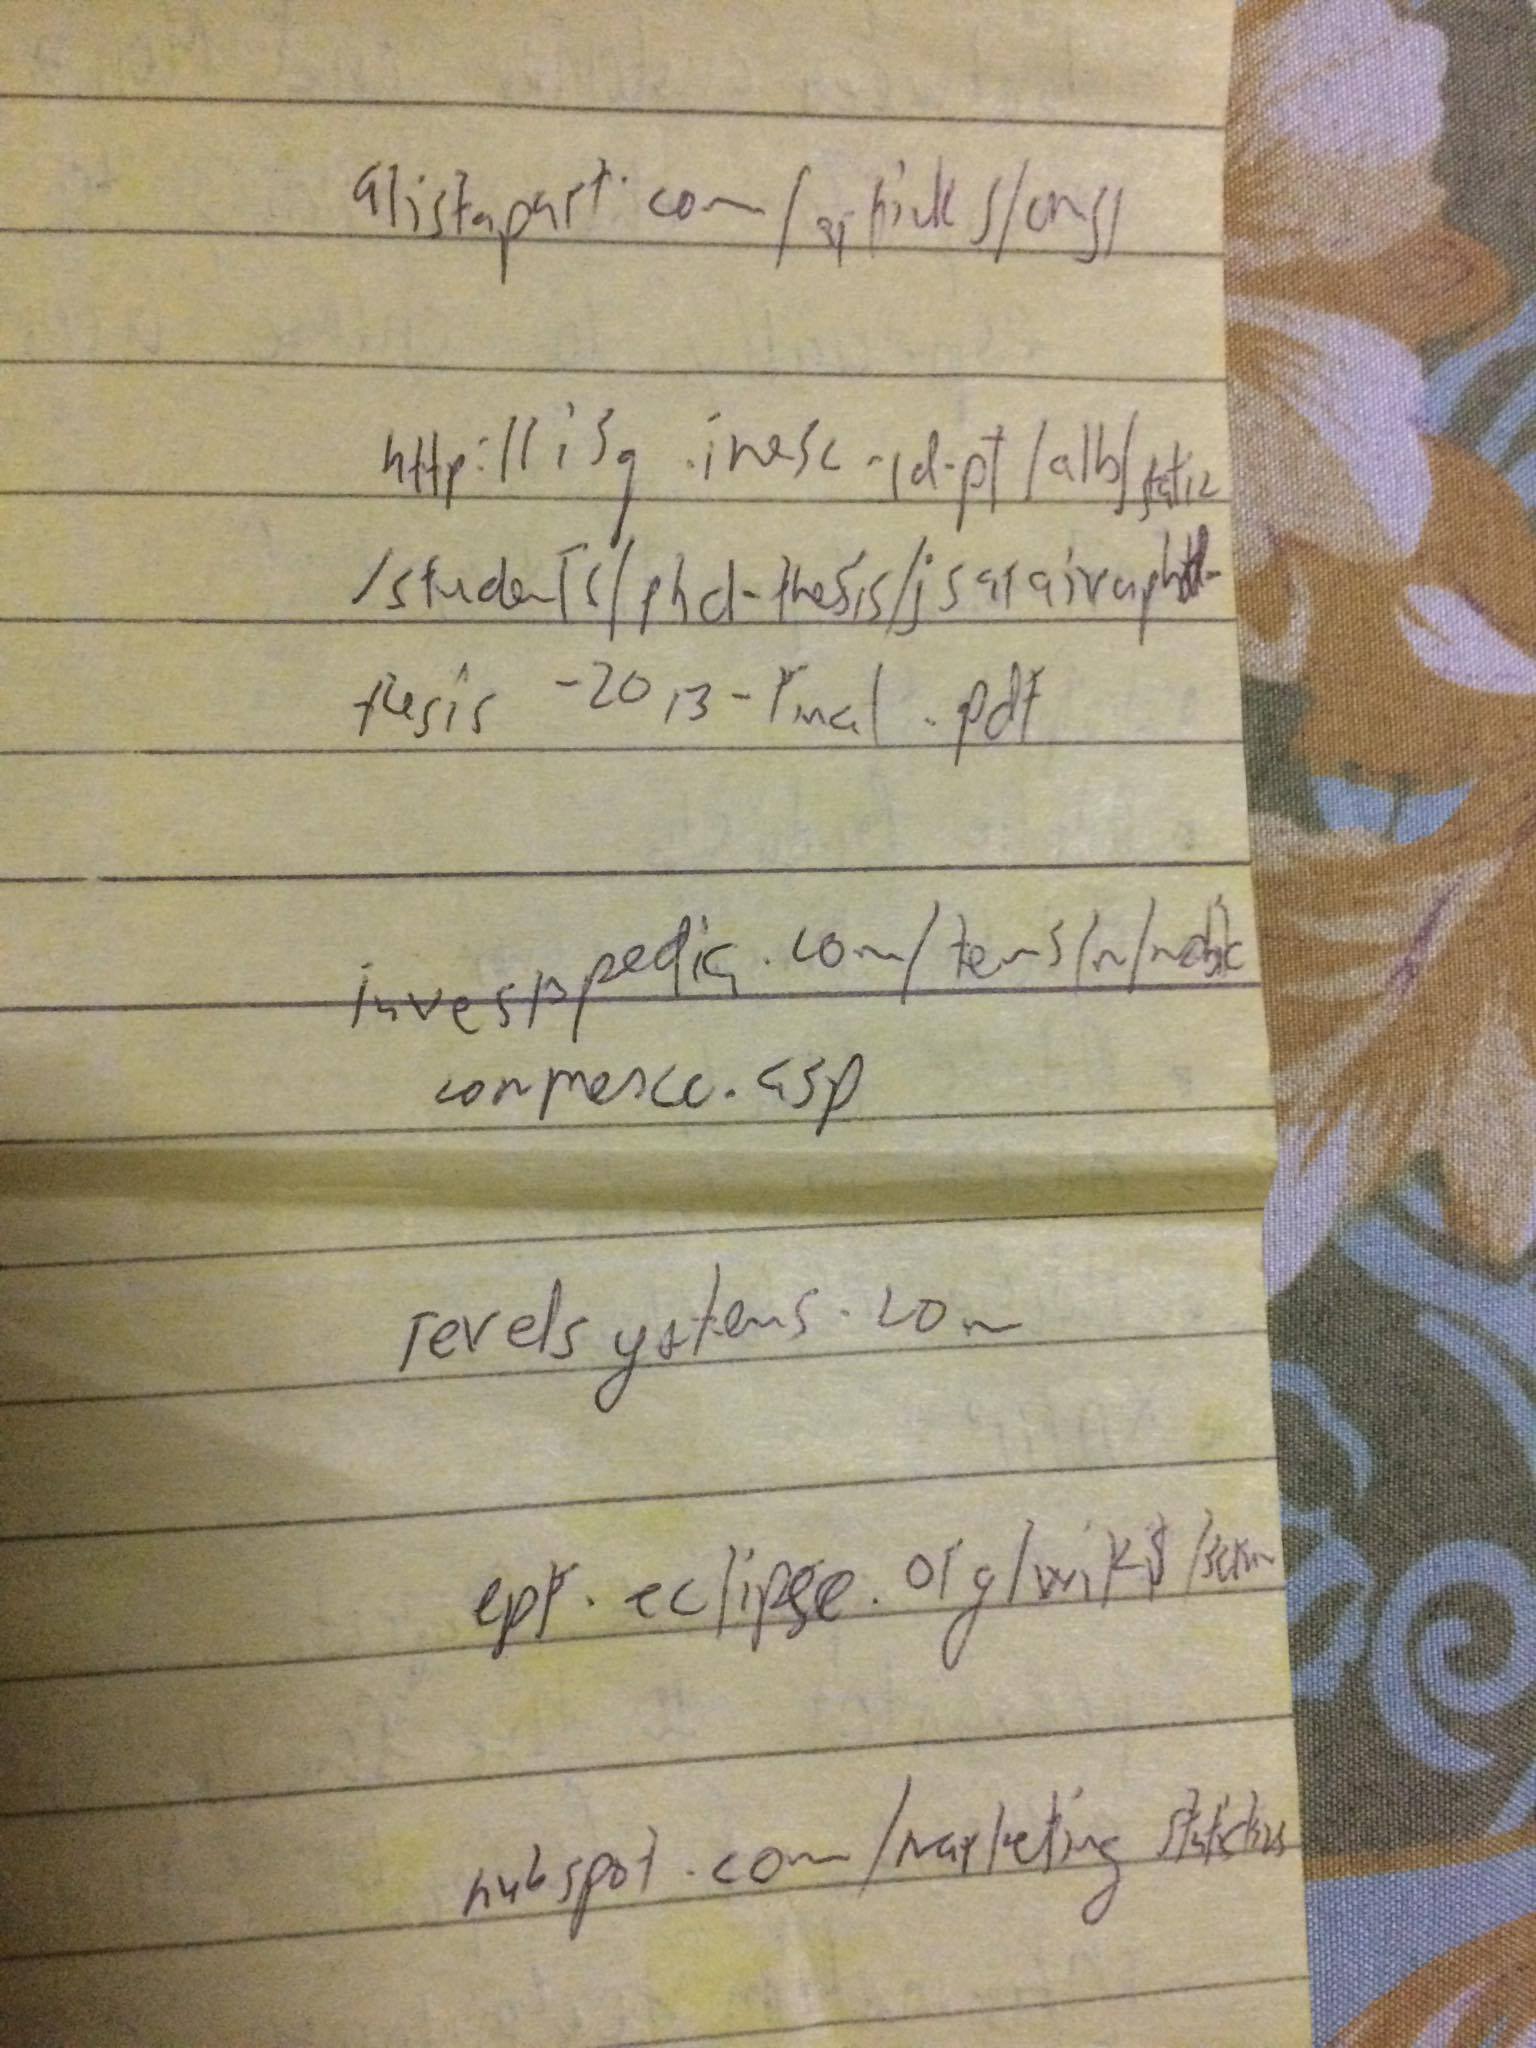 alistapart.com/articles/cms/
http://isg.inesc-id-pt/alb/static
/students/phd-thesis/jsaraivaphd-
thesis-2013-final.pdf
investopedia.com/terms/m/mobile
commerce.asp
revelsystems.com
epf.eclipse.org/wikis/scrum
hubspot.com/marketing statistics